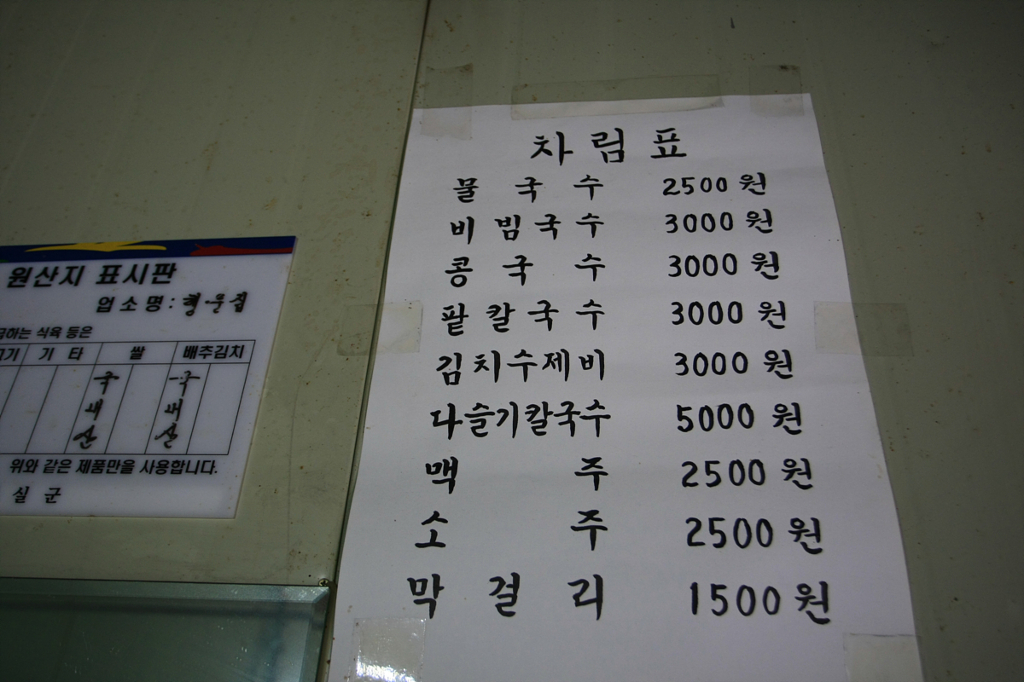 원산지 표시판
업소명:
급하는 식육 등은
고기 기타 쌀 배추김치
국내산 국내산
위와 같은 제품만을 사용합니다.
실군
차림표
물국수 2500원
비빔국수 3000원
콩국수 3000원
팥칼국수 3000원
김치수제비 3000원
다슬기칼국수 5000원
맥주 2500원
소주 2500원
막걸리 1500원